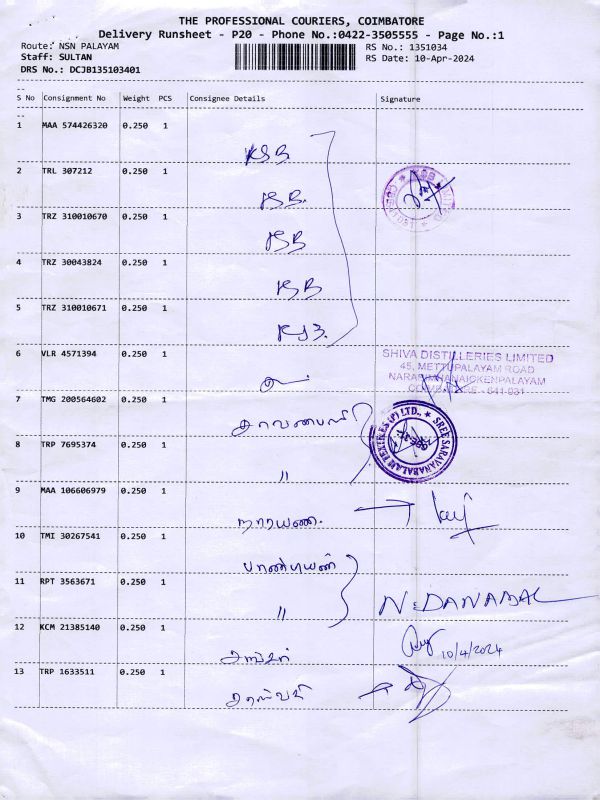 THE PROFESSIONAL COURIERS, COIMBATORE
Delivery Runsheet - P20 - Phone No.:0422-3505555 - Page No.:1
Route: NSN PALAYAM
RS No.: 1351034
Staff: SULTAN
RS Date: 10-Apr-2024
DRS No.: DCJB135103401
--
S No Consignment No Weight PCS Consignee Details Signature
--
1 MAA 574426320 0.250 1
KSB
2 TRL 307212 0.250 1
KSB.
3 TRZ 310010670 0.250 1
KSB
4 TRZ 30043824 0.250 1
KSB
5 TRZ 310010671 0.250 1
KSB.
6 VLR 4571394 0.250 1
SHIVA DISTILLERIES LIMITED
45, METTUPALAYAM ROAD
NARASIMHANAICKENPALAYAM
COIMBATORE - 641 031
7 TMG 200564602 0.250 1
8 TRP 7695374 0.250 1
"
9 MAA 106606979 0.250 1
10 TMI 30267541 0.250 1
பாண்டியன்
11 RPT 3563671 0.250 1
" N. DANABAL
12 KCM 21385140 0.250 1
10/4/2024
13 TRP 1633511 0.250 1